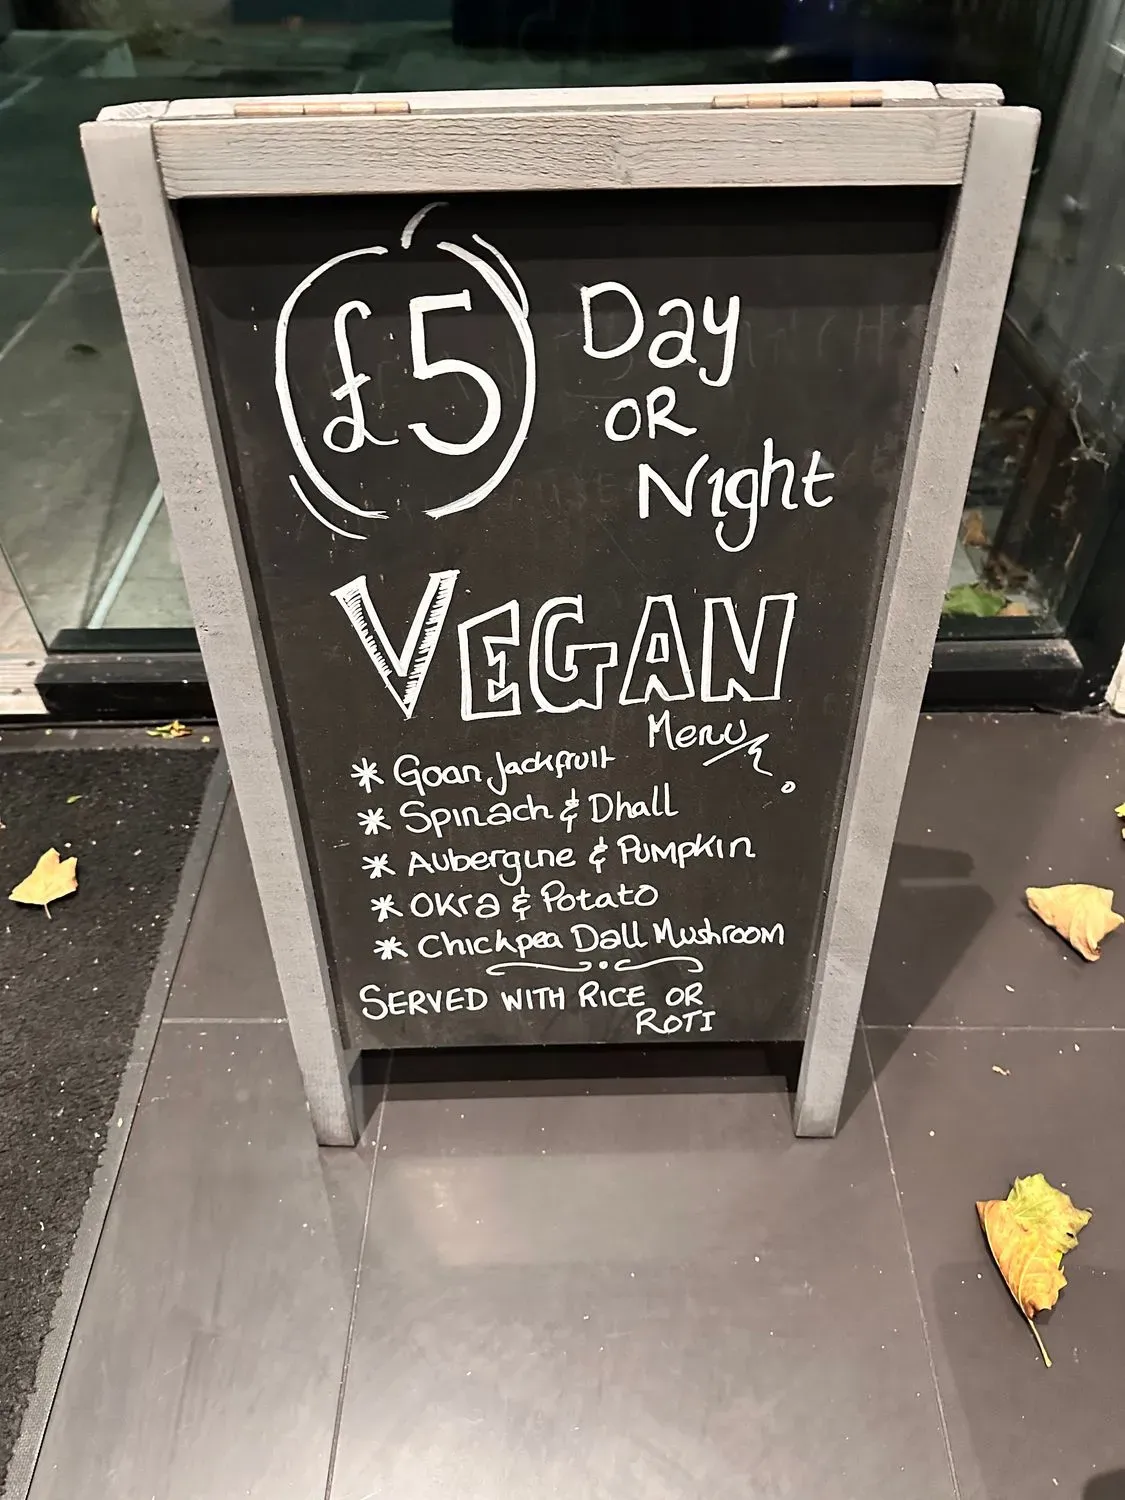 £5
Day
OR
Night
VEGAN
Menu
* Goan Jackfruit
* Spinach & Dhall
* Aubergine & Pumpkin
* Okra & Potato
* Chickpea Dall Mushroom
SERVED WITH RICE OR
ROTI